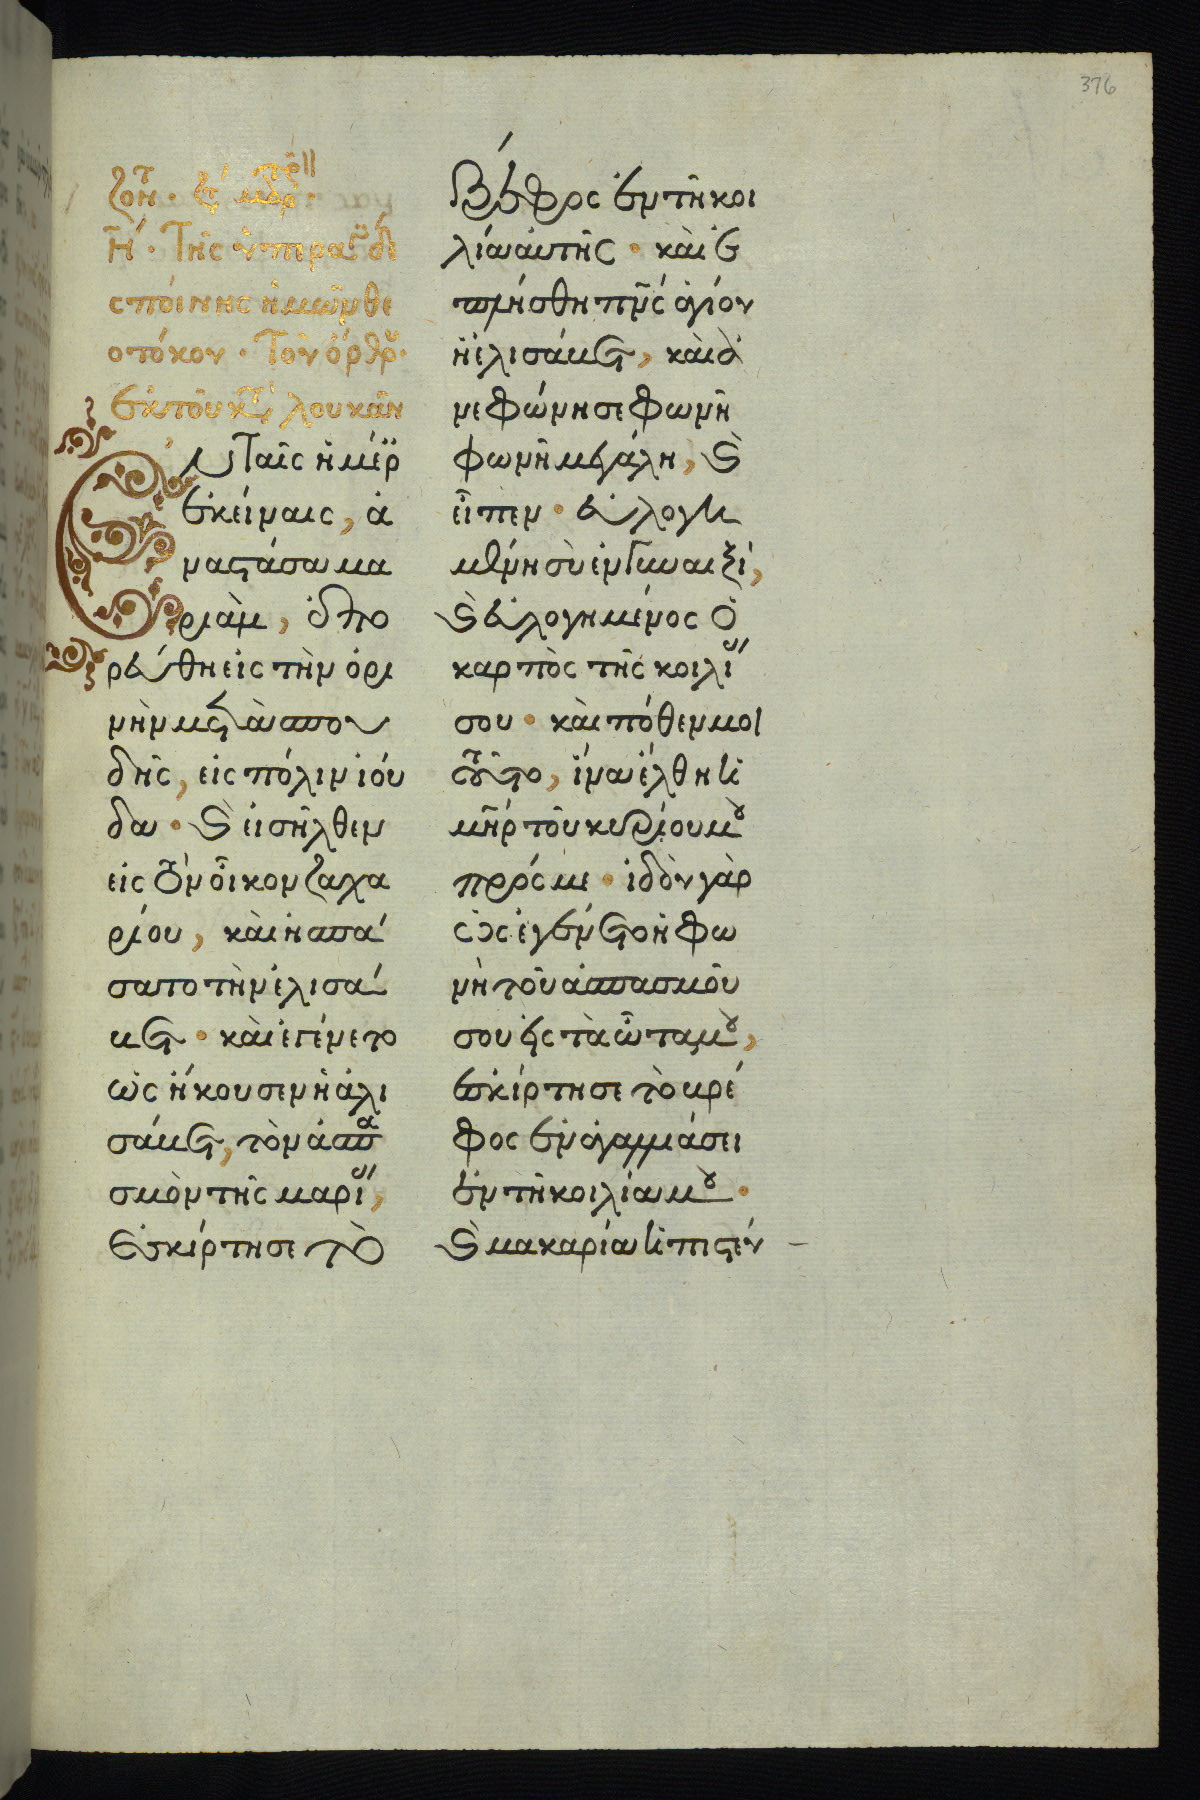 376
ζήτ.
Η. Τῆς ὑπεραγ δε
σποίνης ἡμῶν θε
οτόκου. Εἰς τὸν ὄρθρ.
ἐκ τοῦ κατ λουκᾶν
Ἐν ταῖς ἡμέρ
ἐκείναις, ἀ
ναστᾶσα μα
ριὰμ, ἐπο
ρεύθη εἰς τὴν ὀρει
νὴν μετὰ σπου
δῆς, εἰς πόλιν ἰού
δα · καὶ εἰσῆλθεν
εἰς τὸν οἶκον ζαχα
ρίου, καὶ ἠσπά
σατο τὴν ἐλισά
βετ · καὶ ἐγένετο
ὡς ἤκουσεν ἡ ἐλι
σάβετ, τὸν ἀσπα
σμὸν τῆς μαρί,
ἐσκίρτησε τὸ
βρέφος ἐν τῇ κοι
λία αὐτῆς · καὶ ἐ
πλήσθη πνς ἁγίου
ἡ ἐλισάβετ, καὶ ἀ
νεφώνησε φωνῇ
φωνῆ μεγάλη, καὶ
εἶπεν · εὐλογη
μένη σὺ ἐν γυναιξί,
καὶ εὐλογημένος ὁ
καρπὸς τῆς κοιλί
σου · καὶ πόθεν μοι
τοῦτο, ἵνα ἔλθη ἡ
μηρ τοῦ κυρίου μου
πρός με · ἰδοὺ γὰρ
ὡς ἐγένετο ἡ φω
νὴ τοῦ ἀσπασμοῦ
σου εἰς τὰ ὦτα μου,
ἐσκίρτησε τὸ βρέ
φος ἐν ἀγαλλιάσει
ἐν τῇ κοιλία μου ·
καὶ μακαρία ἡ πιστεύ